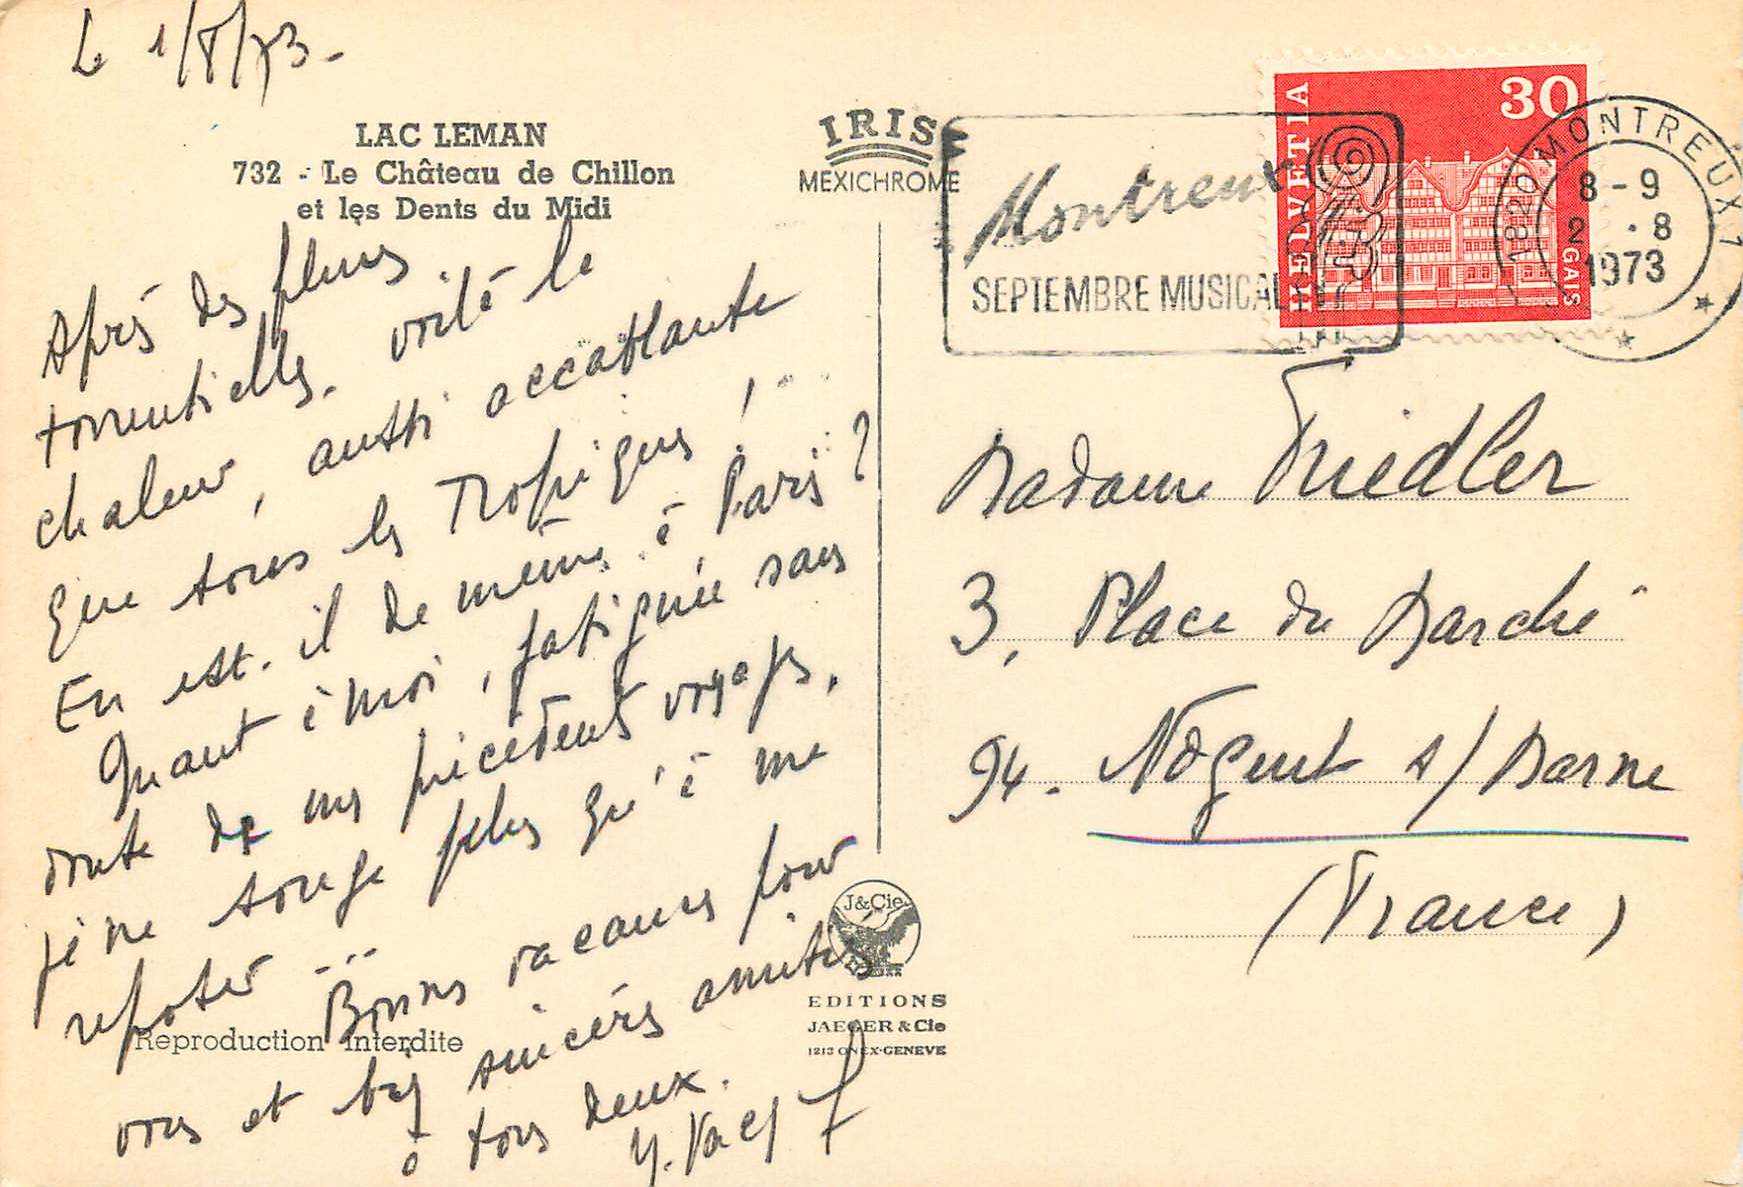 Le 1/8/73.
LAC LEMAN
732 - Le Château de Chillon
et les Dents du Midi
Après des pluies
torrentielles. voilà la
chaleur, aussi accablante
que sous les Tropiques !...
En est-il de même à Paris ?
Quant à moi, fatiguée sans
doute de mes précédents voyages,
je ne songe plus qu'à me
reposer ...
Bonnes vacances pour
vous et bien sincères amitiés
à tous deux.
Reproduction interdite
IRIS
MEXICHROME
Montreux
SEPTEMBRE MUSICAL
HELVETIA
30
GAIS
1820 MONTREUX 1
8-9
2.8
1973
Madame Friedler
3, Place du Marché
94. Nogent s/ Marne
(France)
J&Cie
EDITIONS
JAEGER & Cie
1213 ONEX-GENEVE